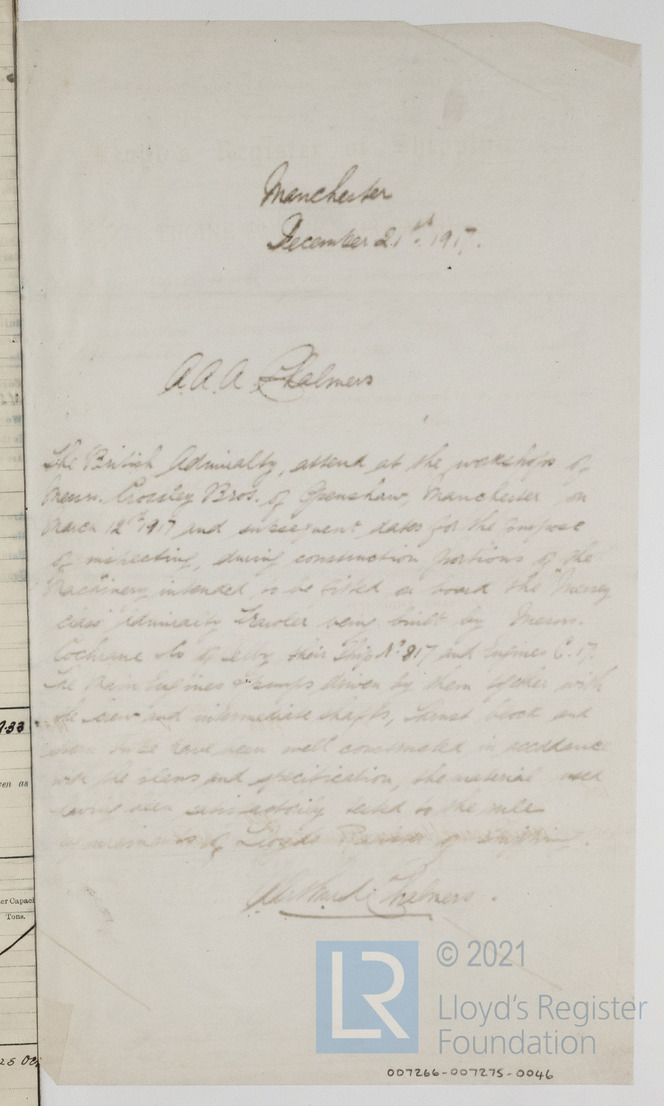 Manchester
December 21st 1917.
A. A. A. Chalmers
The British Admiralty, attend at the workshops of
Messrs. Crossley Bros. of Openshaw, Manchester on
March 12th 1917 and subsequent dates for the purpose
of inspecting, during construction portions of the
Machinery intended to be fitted on board the "Mersey
class" Admiralty Trawler being built by Messrs.
Cochrane of Selby their Ship No 817 and Engines C.17.
The Main Engines & pumps driven by them together with
the screw and intermediate shafts, thrust block and
stern tube have been well constructed in accordance
with the plans and specification, the material used
having been satisfactorily tested to the rule
requirements of Lloyds Register of Shipping.
Chalmers.
LR
© 2021
Lloyd's Register
Foundation
007266-007275-0046
9.33
en as
er Capaci
Tons.